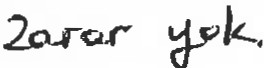 Zarar yok.